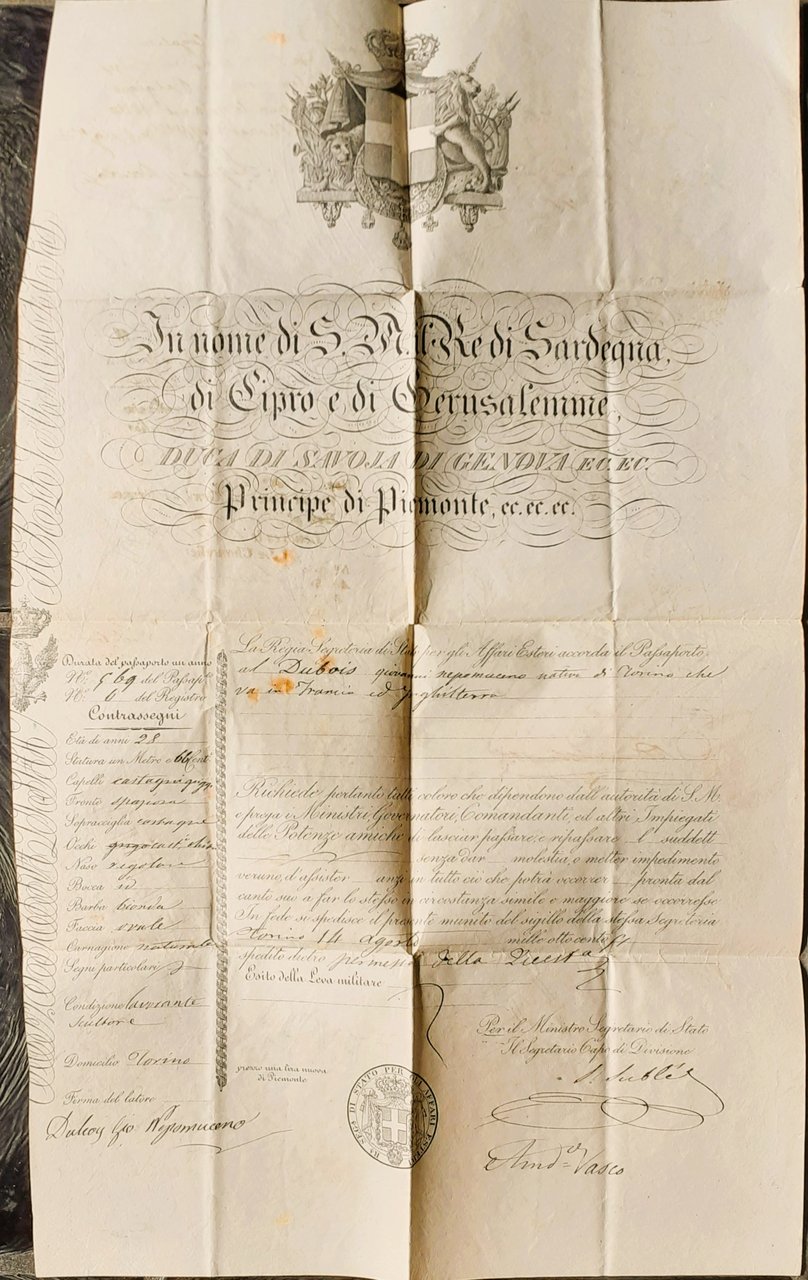 In nome di S. M. il Re di Sardegna,
di Cipro e di Gerusalemme,
DUCA DI SAVOJA DI GENOVA EC. EC.
Principe di Piemonte, ec. ec. ec.
Durata del passaporto un anno
N.º 569 del Passap.
N.º 6 del Registro
Contrassegni
Età di anni 28
Statura un Metro e 66 Cent.
Capelli
Fronte spaziosa
Sopracciglia castagne
Occhi
Naso regolare
Bocca id
Barba bionda
Faccia ovale
Carnagione naturale
Segni particolari
Condizione lavorante
scultore
Domicilio Torino
Firma del latore
Dubois Gio Nepomuceno
La Regia Segreteria di Stato per gli Affari Esteri accorda il Passaporto
al Dubois giovanni nepomuceno nativo di Torino che
va in Francia ed Inghilterra
Richiede pertanto tutti coloro che dipendono dall'autorità di S. M.
e prega i Ministri, Governatori, Comandanti, ed altri Impiegati
delle Potenze amiche di lasciar passare, e ripassare l suddett
senza dar molestia, o metter impedimento
veruno, d'assister anzi in tutto ciò che potrà occorrer pronta dal
canto suo a far lo stesso in circostanza simile e maggiore se occorresse
In fede si spedisce il presente munito del sigillo della stessa Segreteria
Torino 14 Agosto mille otto cento
spedito dietro permesso della
Esito della Leva militare
Per il Ministro Segretario di Stato
Il Segretario Capo di Divisione
prezzo una lira nuova
di Piemonte
Vasco
R.ª SEG.ª DI STATO PER GLI AFFARI ESTERI